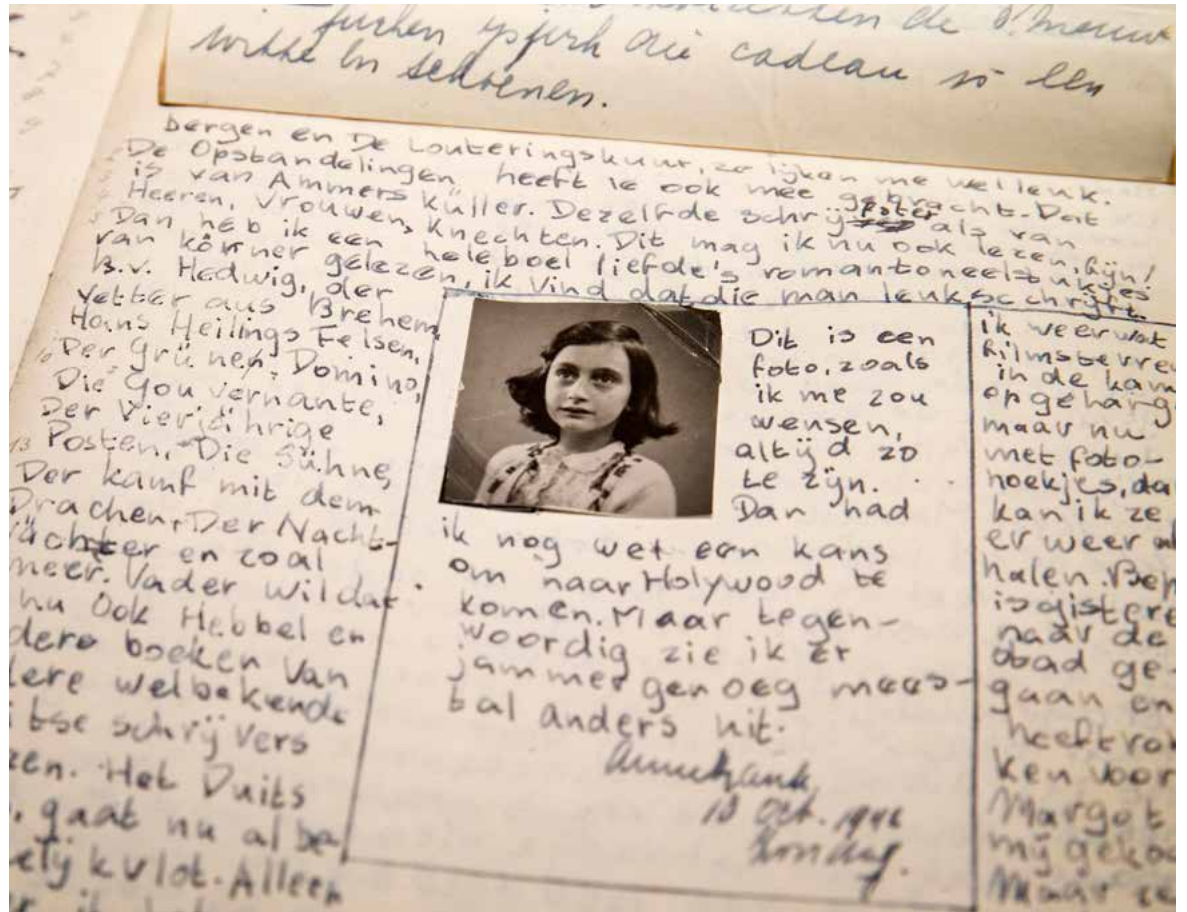 de
furken die cadeau is een
witte en schoenen.
bergen en De Louteringskuur, ze lijken me wel leuk.
De Opstandelingen heeft ie ook mee gebracht. Dat
is van Ammers Küller. Dezelfde schrijfster als van
Heeren, Vrouwen, Knechten. Dit mag ik nu ook lezen, fijn!
Dan heb ik een heleboel liefde's romantoneelstukjes
van körner gelezen, ik vind dat die man leuk schrijft.
B.v. Hedwig, der
Vetter aus Brehem,
Hans Heilings Felsen,
Der Grünen, Domino,
Die Gouvernante,
Der Vierjährige
Posten, Die Sühne,
Der kamf mit dem
Drachen, Der Nacht-
wächter en zoal
meer. Vader wil dat
nu ook Hebbel en
dere boeken van
dere welbekende
itse schrijvers
zen. Het Duits
gaat nu al be-
lijk vlot. Alleen
Dit is een
foto, zoals
ik me zou
wensen,
altijd zo
te zijn.
Dan had
ik nog wel een kans
om naar Holywood te
komen. Maar tegen-
woordig zie ik er
jammer genoeg mees-
tal anders uit.
Annefrank.
18 Oct. 1942
Zondag.
ik weer wat
filmsterre
in de kam
opgehang
maar nu
met foto-
hoekjes, da
kan ik ze
er weer af
halen. Beh
is gistere
naar de
stad ge-
gaan en
heeft rok
ken voor
Margot
mij geko
Maar ze